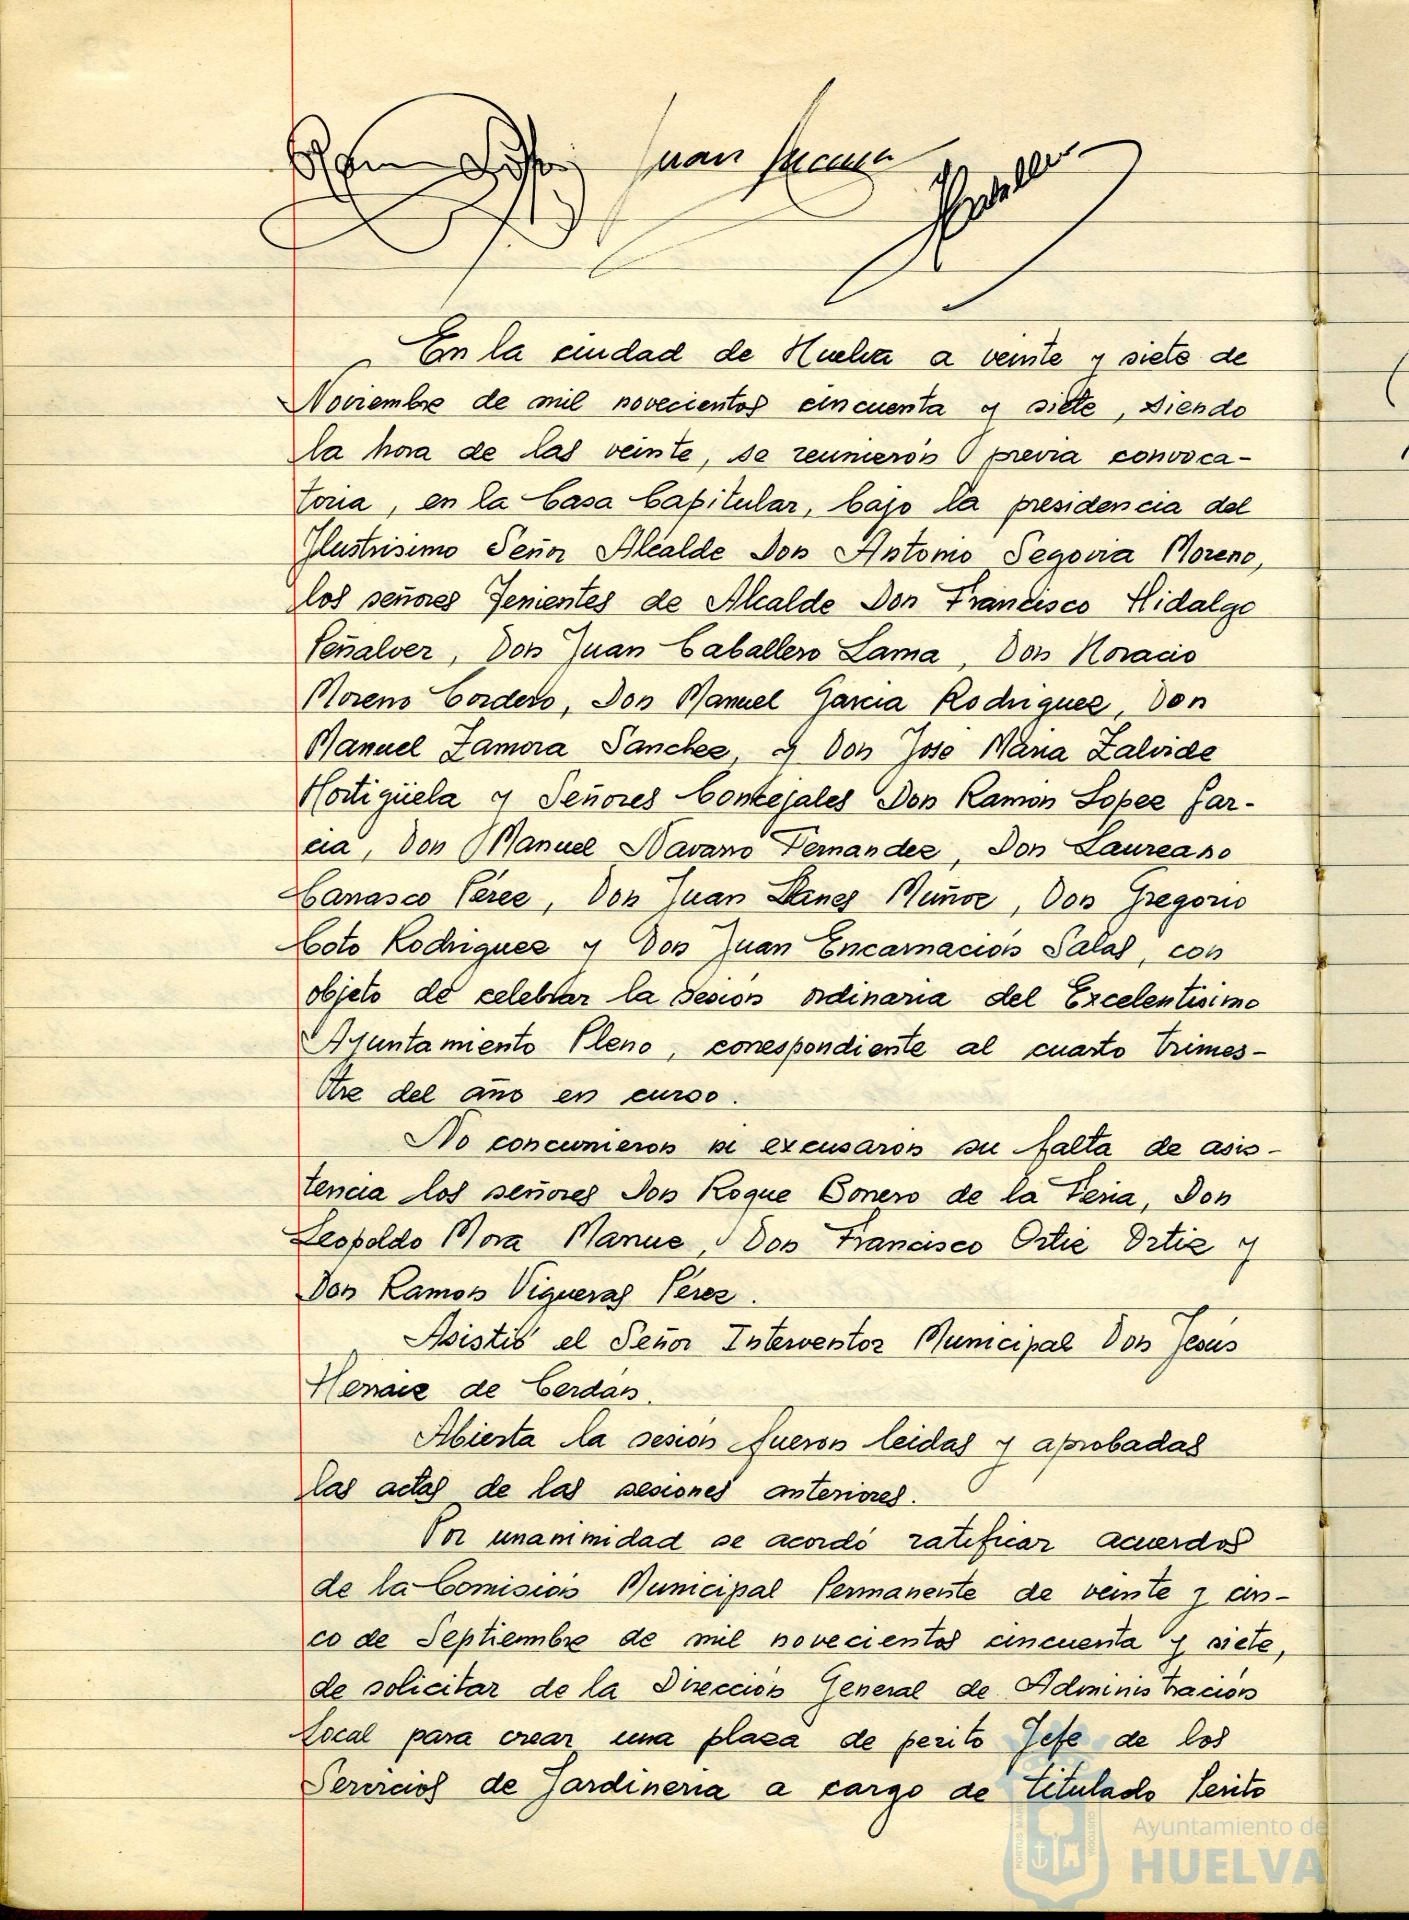 Juan
Caballero
En la ciudad de Huelva a veinte y siete de
Noviembre de mil novecientos cincuenta y siete, siendo
la hora de las veinte, se reunierón previa convoca-
toria, en la Casa Capitular, bajo la presidencia del
Ilustrisimo Señor Alcalde Don Antonio Segovia Moreno,
los señores Tenientes de Alcalde Don Francisco Hidalgo
Peñalver, Don Juan Caballero Lama, Don Horacio
Moreno Cordero, Don Manuel Garcia Rodriguez, Don
Manuel Zamora Sanchez, y Don Jose Maria Zalvide
Hortigüela y Señores Concejales Don Ramon Lopez Gar-
cia, Don Manuel Navarro Fernandez, Don Laureano
Carrasco Pérez, Don Juan Llanes Muñoz, Don Gregorio
Coto Rodriguez y Don Juan Encarnación Salas, con
objeto de celebrar la sesión ordinaria del Excelentisimo
Ayuntamiento Pleno, correspondiente al cuarto trimes-
tre del año en curso.
No concurrieron ni excusarón su falta de asis-
tencia los señores Don Roque Bonero de la Feria, Don
Leopoldo Mora Manue, Don Francisco Ortiz Ortiz y
Don Ramon Vigueras Pérez.
Asistió el Señor Interventor Municipal Don Jesús
Herraiz de Cerdán.
Abierta la sesión fueron leidas y aprobadas
las actas de las sesiones anteriores.
Por unanimidad se acordó ratificar acuerdos
de la Comisión Municipal Permanente de veinte y cin-
co de Septiembre de mil novecientos cincuenta y siete,
de solicitar de la Dirección General de Administración
Local para crear una plaza de perito Jefe de los
Servicios de Jardineria a cargo de titulado Perito
Ayuntamiento de
HUELVA